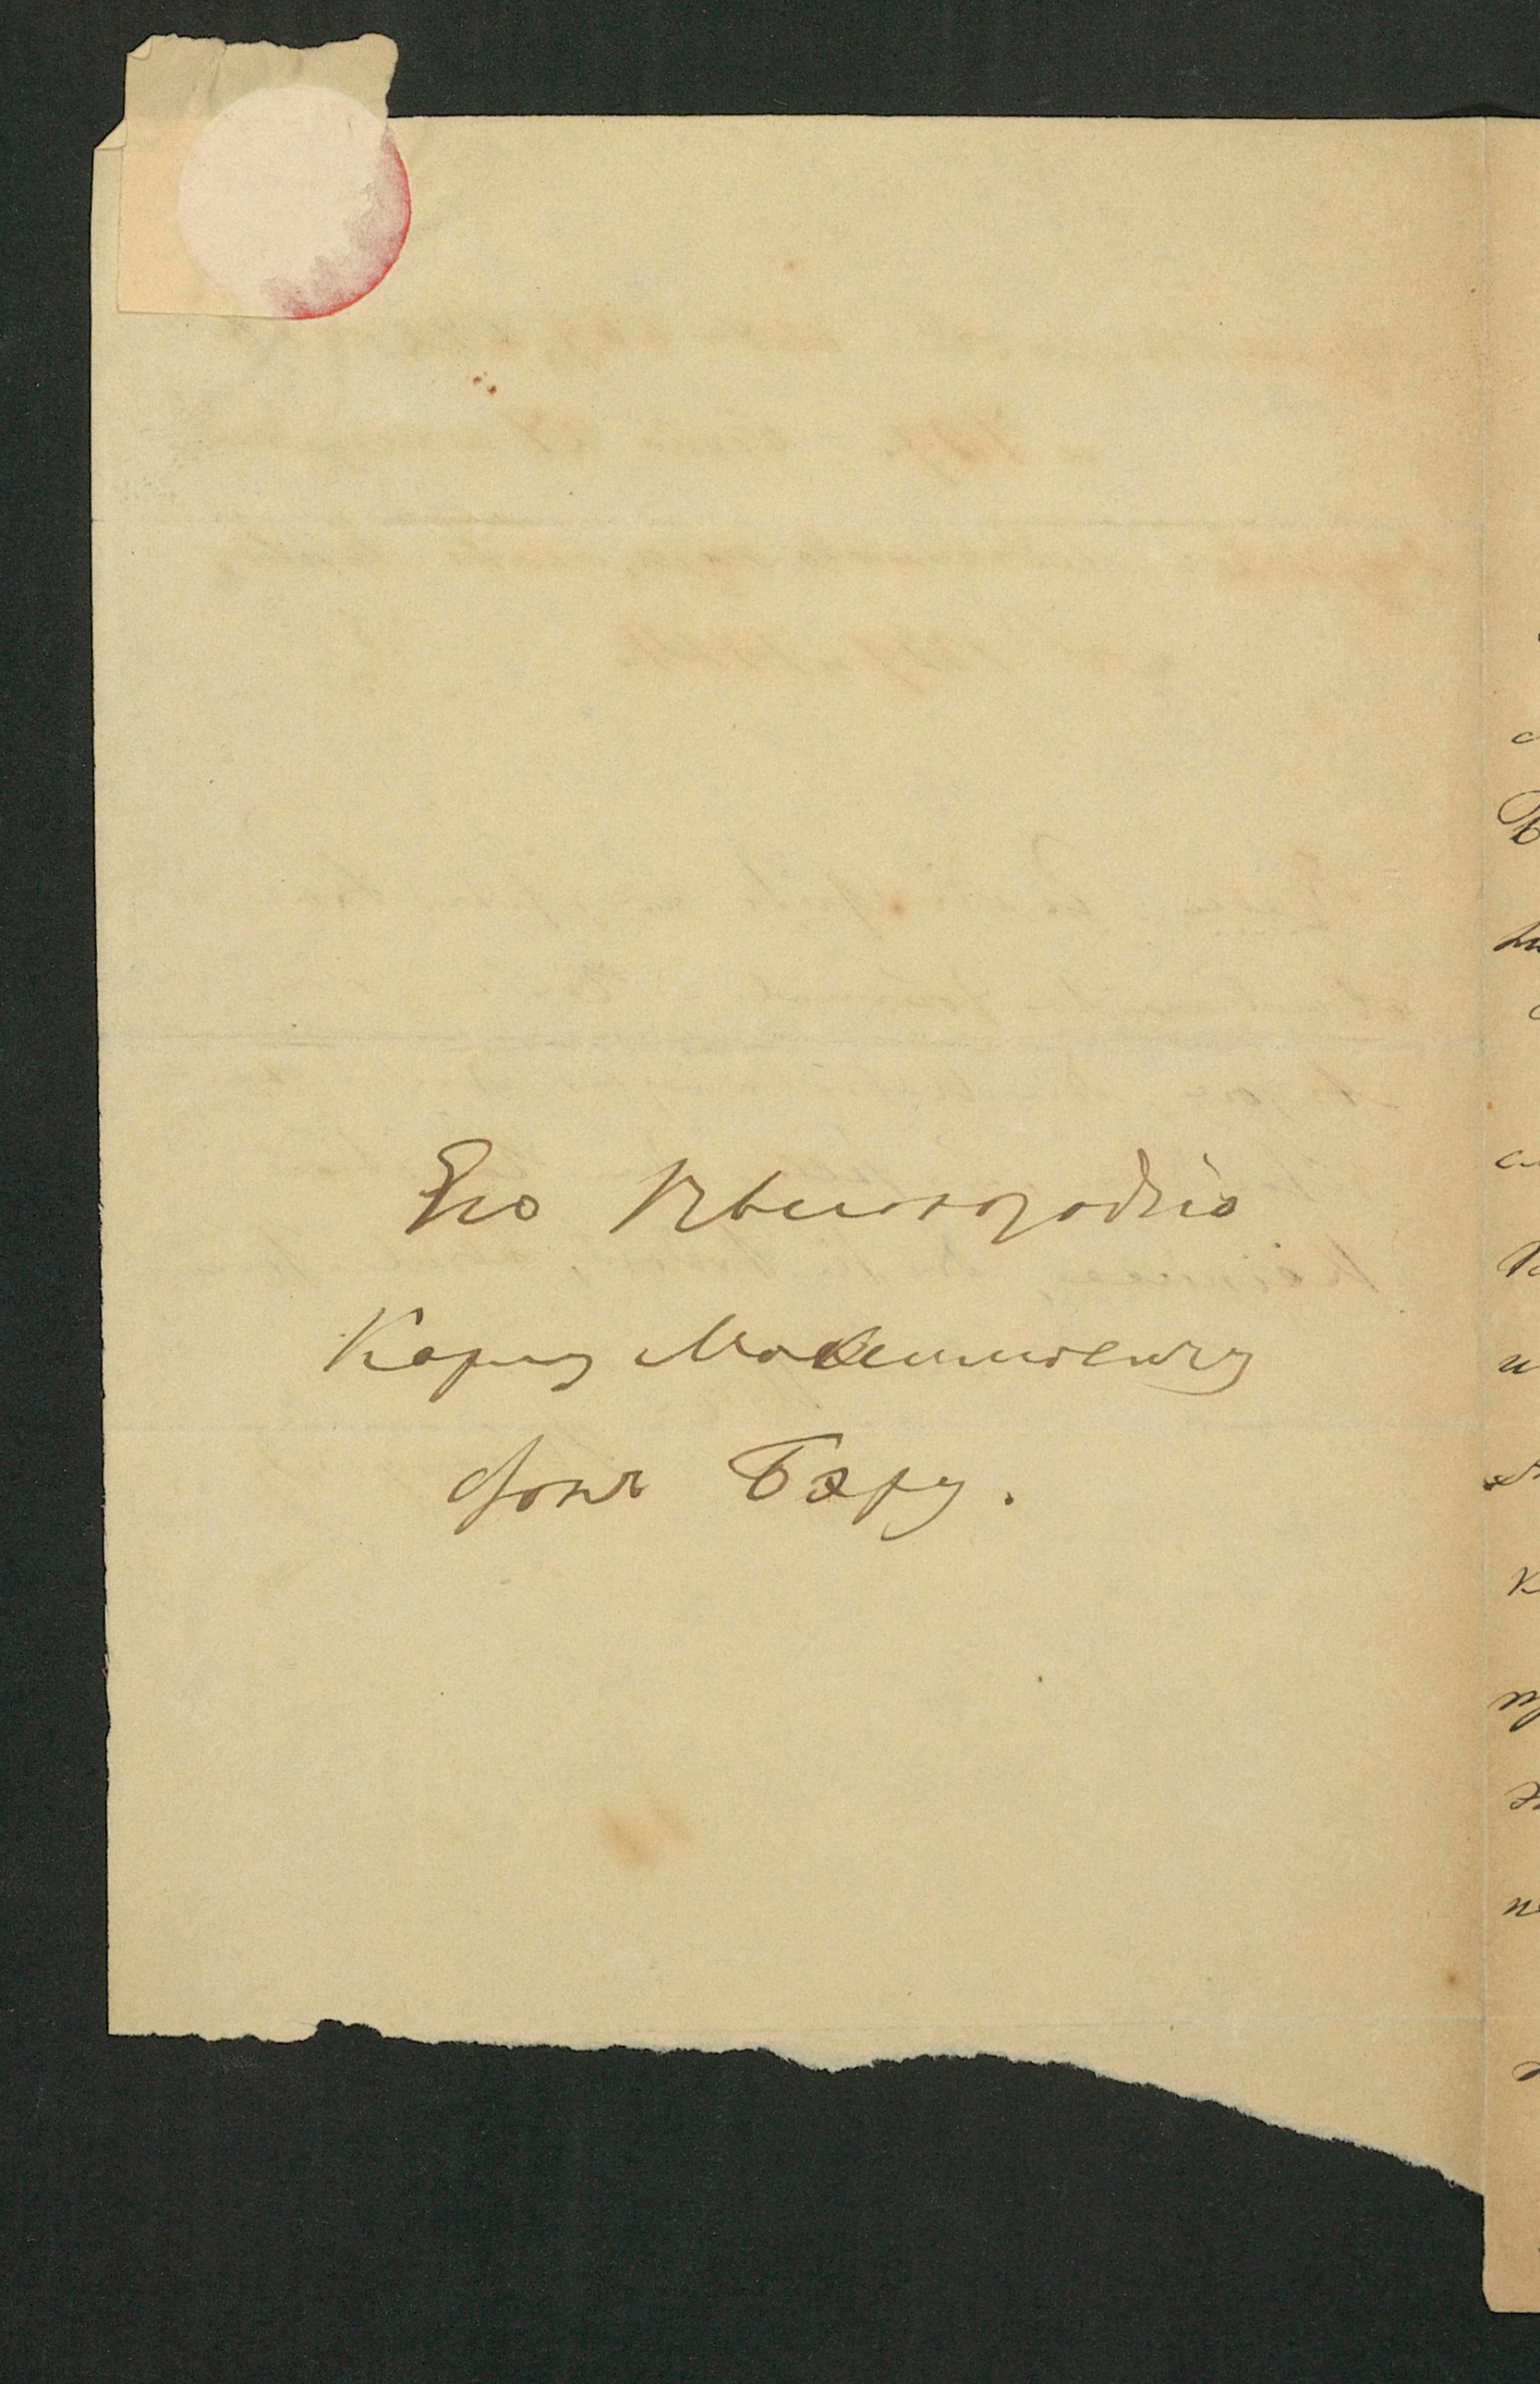 Его Высокородію
Карлу Максимовичу
фонъ Бэру.